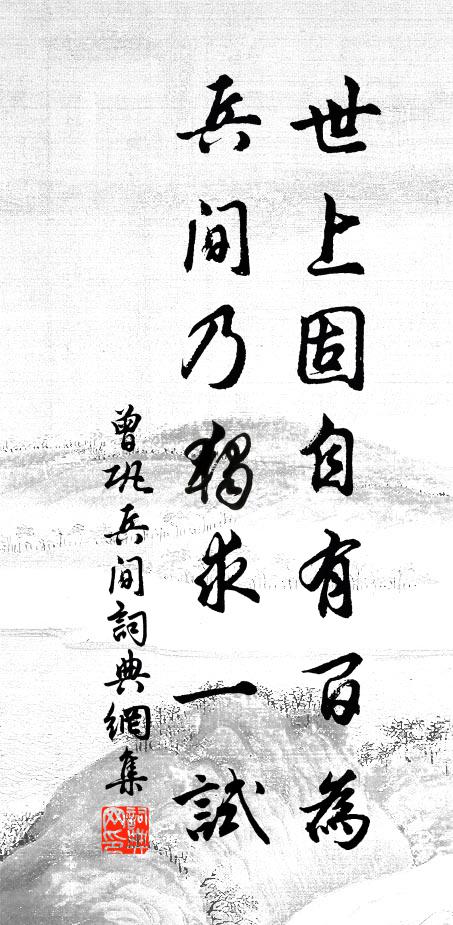 世上固自有百為
兵間乃獨求一試
曾巩兵间詞典網集